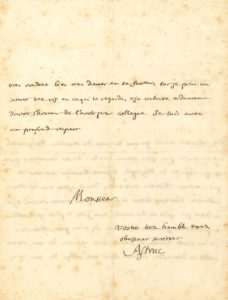 vous voudrez bien vous donner en sa faveur, car je prens un
interet tres vif en ce qui le regarde, et je souhaite
d'avoir l'honneur de l'avoir pour collegue. Je suis avec
un profond respect
Monsieur
Votre tres humble et tres
obeissant serviteur
Astruc